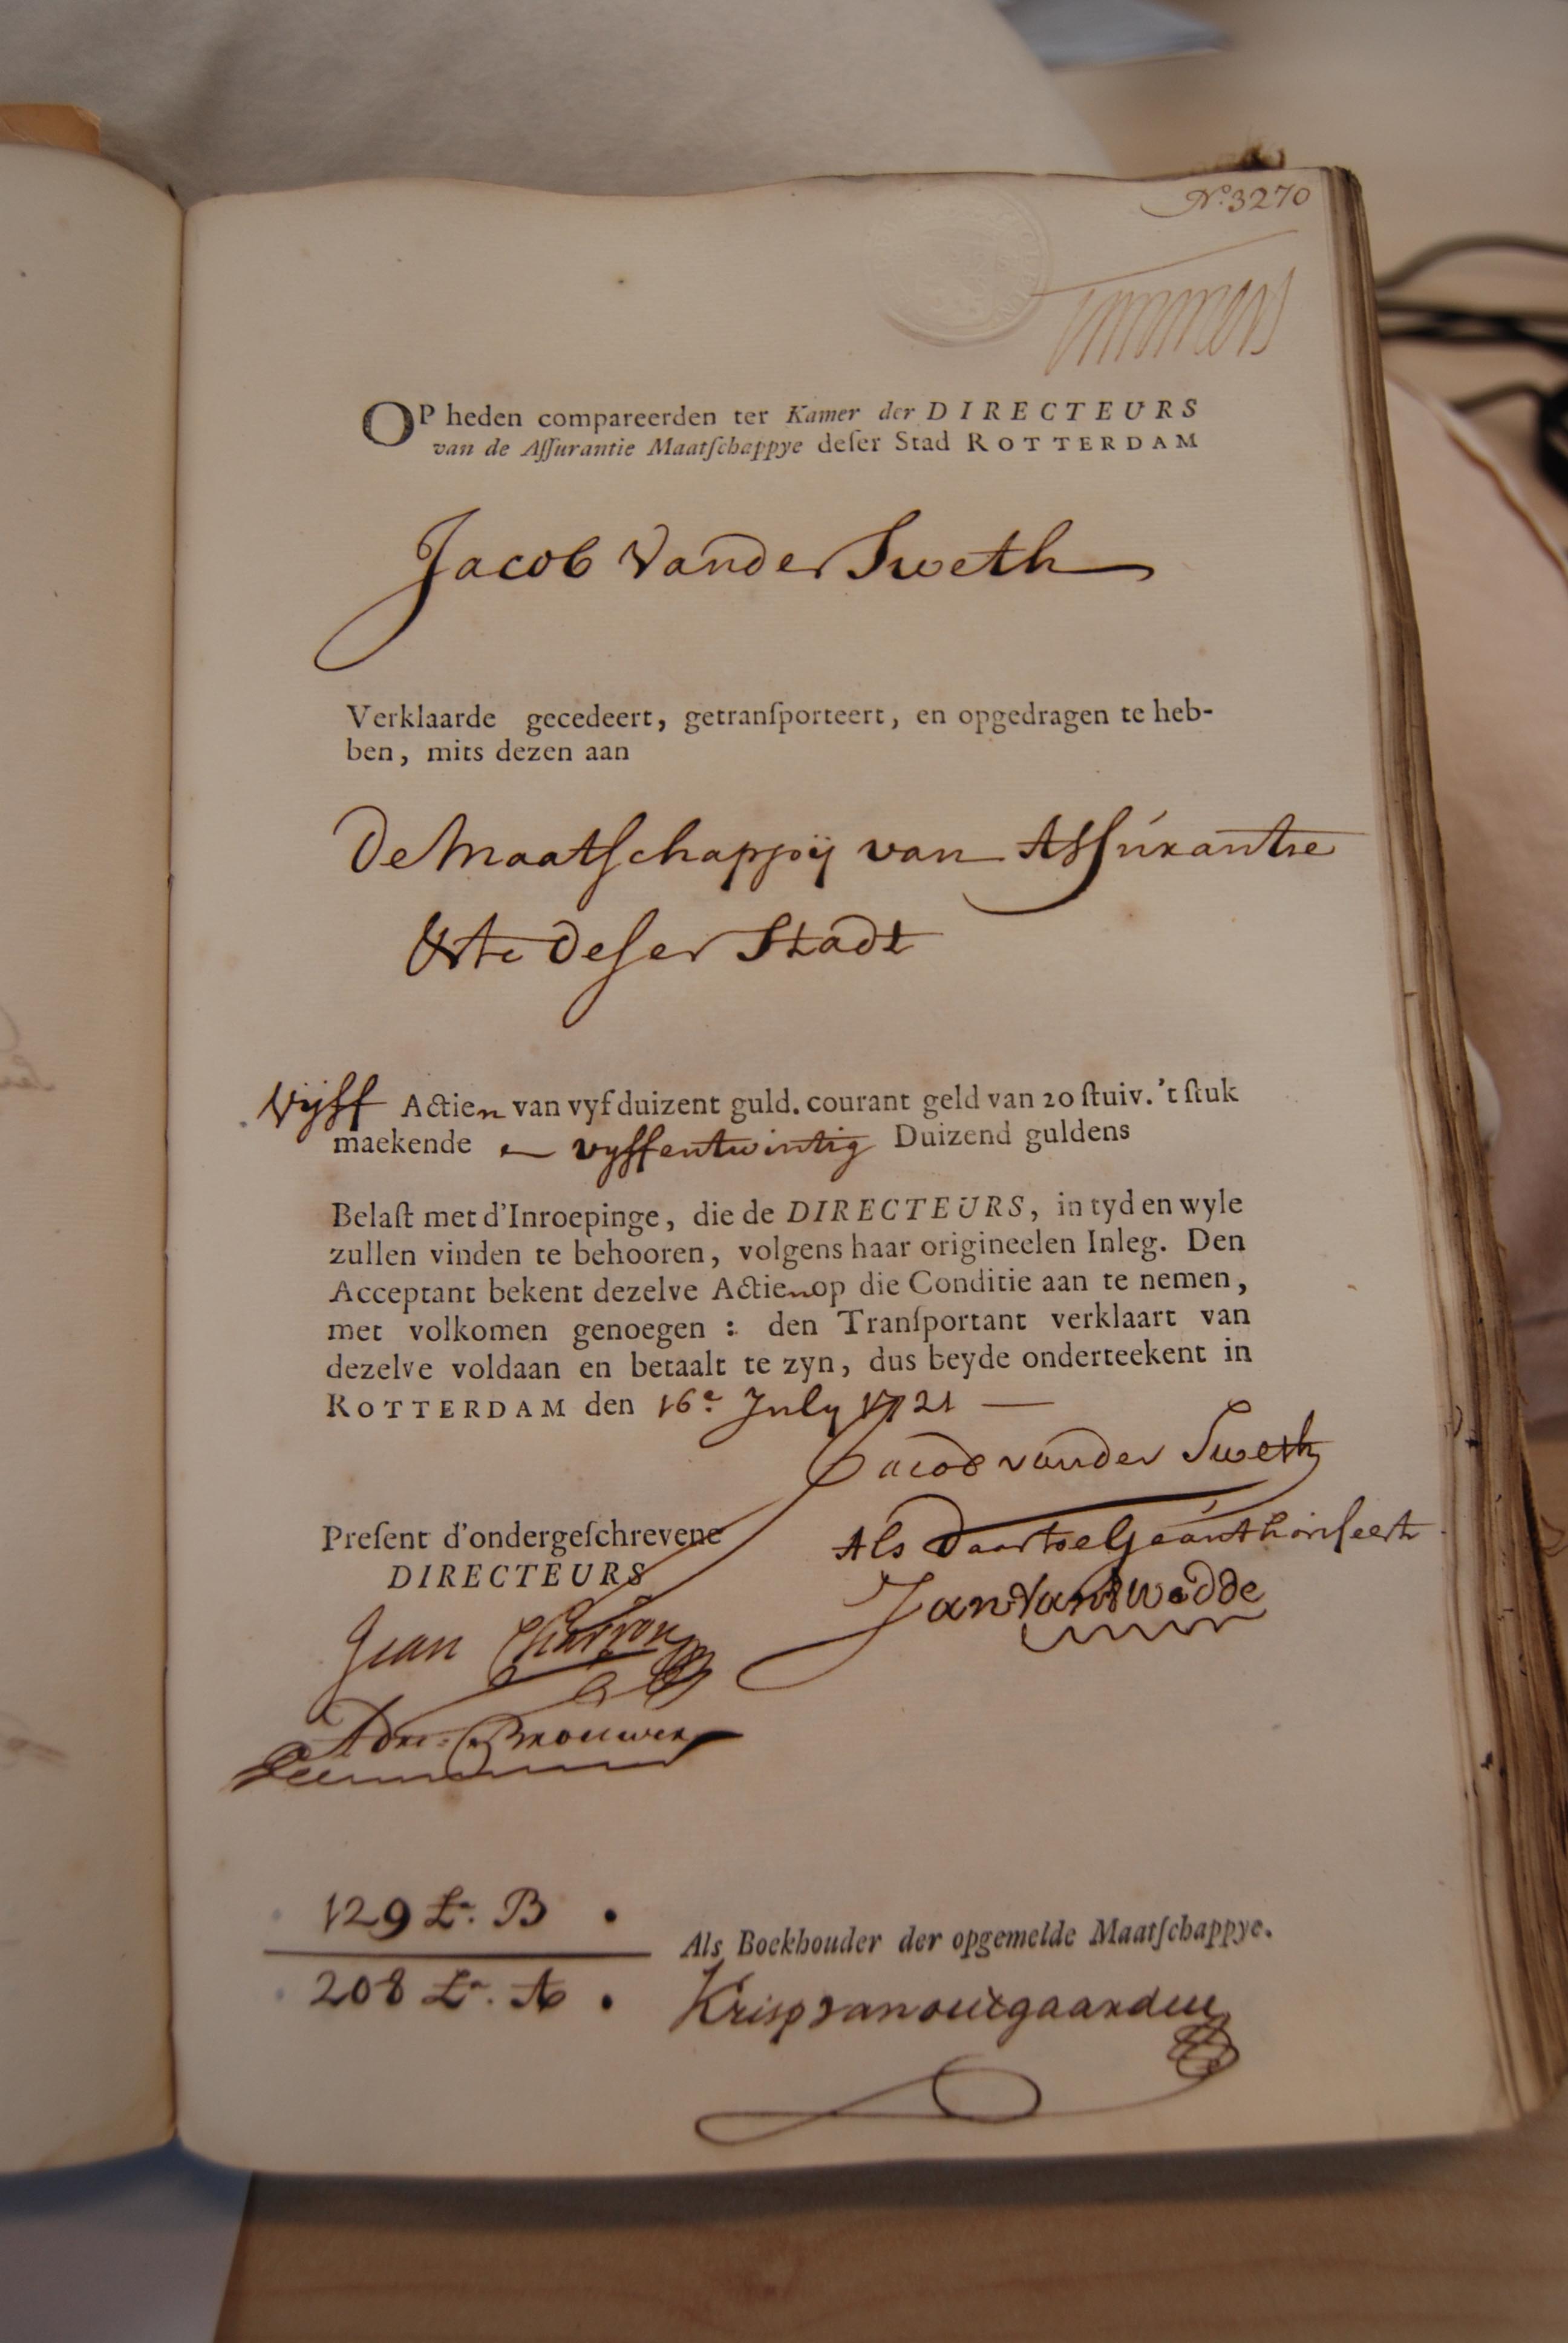 No. 3270
OP heden compareerden ter Kamer der DIRECTEURS
van de Aſſurantie Maatſchappye deſer Stad ROTTERDAM
Jacob Vander Sweth
Verklaarde gecedeert, getranſporteert, en opgedragen te heb-
ben, mits dezen aan
De Maatſchappÿ van Aſſúrantie
&te deſer Stadt
Vijff Actien van vyf duizent guld. courant geld van 20 ſtuiv. 't ſtuk
maekende vyffentwintig Duizend guldens
Belaſt met d'Inroepinge, die de DIRECTEURS, in tyd en wyle
zullen vinden te behooren, volgens haar origineelen Inleg. Den
Acceptant bekent dezelve Actien op die Conditie aan te nemen,
met volkomen genoegen : den Tranſportant verklaart van
dezelve voldaan en betaalt te zyn, dus beyde onderteekent in
ROTTERDAM den 16e July 1721 —
Jacob vander Sweth
Preſent d'ondergeſchrevene
DIRECTEURS
Als daartoe Geauthoriseert
Jan Van
Jean
Adri: Brouwer
129 Lr. B
208 Lr. A
Als Boekhouder der opgemelde Maatſchappye.
Krisp van outgaarden